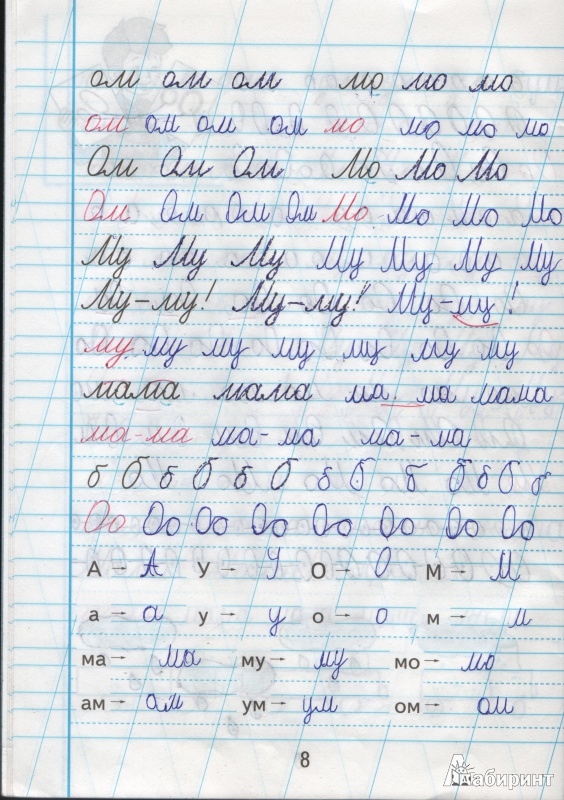 ом ом ом мо мо мо
ом ом ом ом мо мо мо мо
Ом Ом Ом Мо Мо Мо
Ом Ом Ом Ом Мо Мо Мо Мо
Му Му Му Му Му Му Му
Му-му! Му-му! Му-му!
му му му му му му му
мама мама ма ма мама
ма-ма ма-ма ма-ма
б б б б б б б б б б б б б
Оо Оо Оо Оо Оо Оо Оо Оо
А → А У → У О → О М → М
а → а у → у о → о м → м
ма → ма му → му мо → мо
ам → ам ум → ум ом → ом
8
Лабиринт